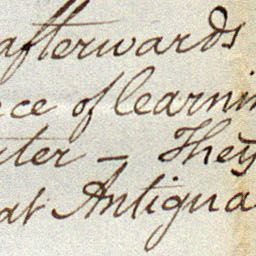 afterwards
ce of learnin
ter — They
at Antigua